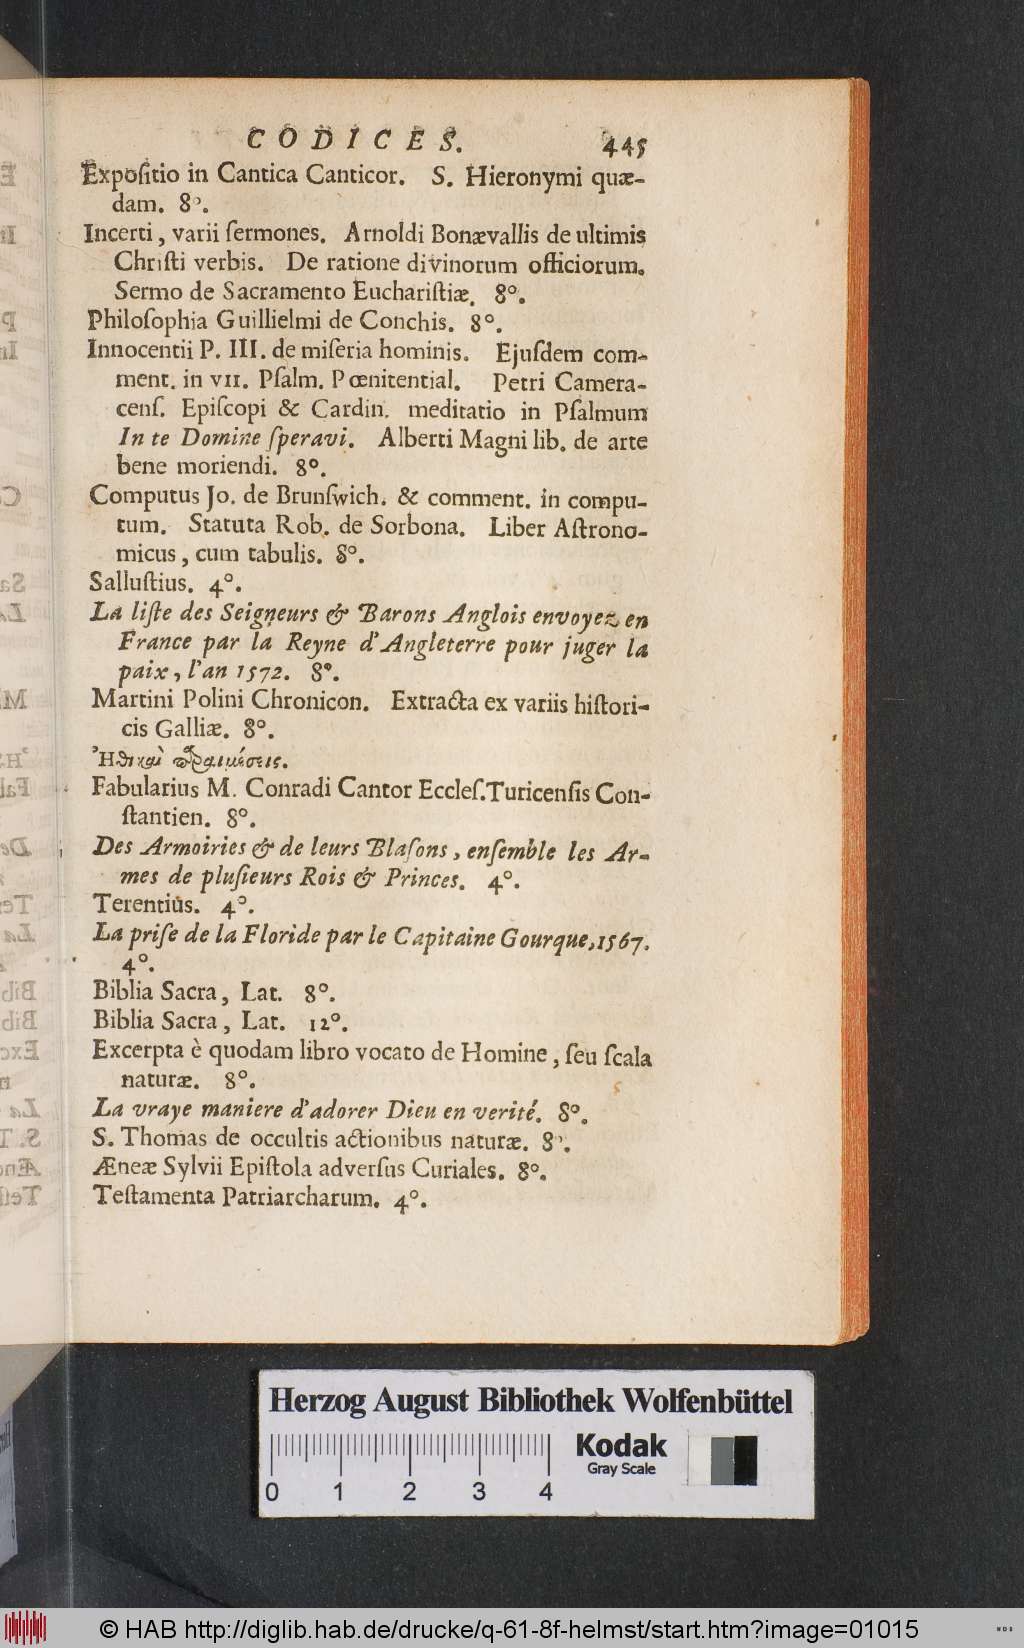 CODICES. 445
Expoſitio in Cantica Canticor. S. Hieronymi quæ-
dam. 8°.
Incerti, varii ſermones. Arnoldi Bonævallis de ultimis
Chriſti verbis. De ratione divinorum officiorum.
Sermo de Sacramento Euchariſtiæ. 8°.
Philoſophia Guillielmi de Conchis. 8°.
Innocentii P. III. de miſeria hominis. Ejuſdem com-
ment. in VII. Pſalm. Pœnitential. Petri Camera-
cenſ. Epiſcopi & Cardin. meditatio in Pſalmum
In te Domine ſperavi. Alberti Magni lib. de arte
bene moriendi. 8°.
Computus Jo. de Brunſwich. & comment. in compu-
tum. Statuta Rob. de Sorbona. Liber Aſtrono-
micus, cum tabulis. 8°.
Salluſtius. 4°.
La liſte des Seigneurs & Barons Anglois envoyez en
France par la Reyne d'Angleterre pour juger la
paix, l'an 1572. 8°.
Martini Polini Chronicon. Extracta ex variis hiſtori-
cis Galliæ. 8°.
Ἠθικαὶ
Fabularius M. Conradi Cantor Eccleſ. Turicenſis Con-
ſtantien. 8°.
Des Armoiries & de leurs Blaſons, enſemble les Ar-
mes de pluſieurs Rois & Princes. 4°.
Terentius. 4°.
La priſe de la Floride par le Capitaine Gourque, 1567.
4°.
Biblia Sacra, Lat. 8°.
Biblia Sacra, Lat. 12°.
Excerpta è quodam libro vocato de Homine, ſeu ſcala
naturæ. 8°.
La vraye maniere d'adorer Dieu en verité. 8°.
S. Thomas de occultis actionibus naturæ. 8°.
Æneæ Sylvii Epiſtola adverſus Curiales. 8°.
Teſtamenta Patriarcharum. 4°.
Herzog August Bibliothek Wolfenbüttel
Kodak
Gray Scale
0 1 2 3 4
© HAB http://diglib.hab.de/drucke/q-61-8f-helmst/start.htm?image=01015